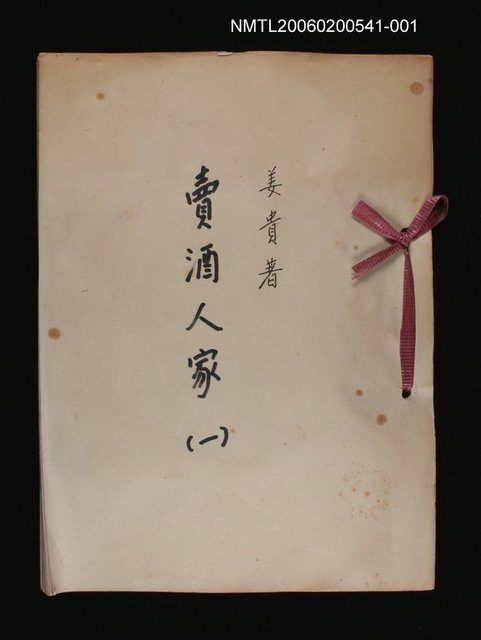 NMTL20060200541-001
姜貴著
賣酒人家
(一)